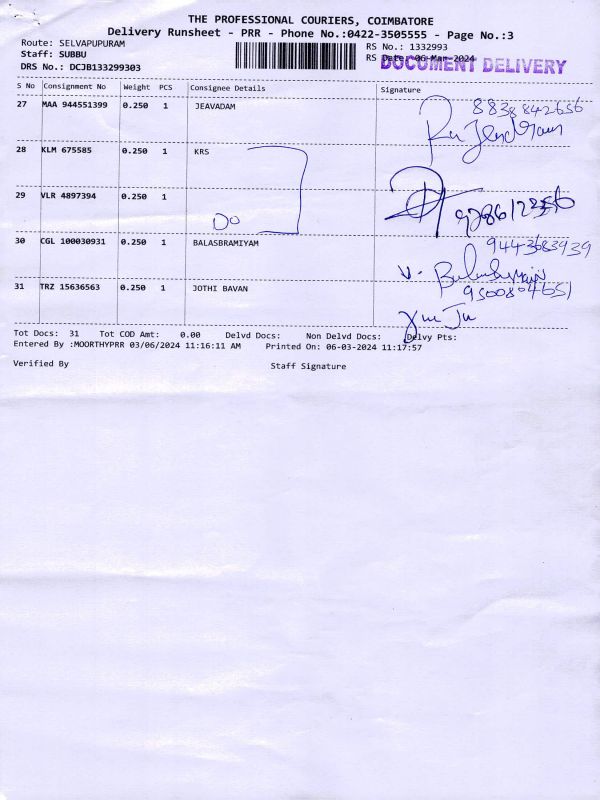 THE PROFESSIONAL COURIERS, COIMBATORE
Delivery Runsheet - PRR - Phone No.:0422-3505555 - Page No.:3
Route: SELVAPUPURAM
RS No.: 1332993
Staff: SUBBU
RS Date: 06-Mar-2024
DOCUMENT DELIVERY
DRS No.: DCJB133299303
S No Consignment No Weight PCS Consignee Details Signature
27 MAA 944551399 0.250 1 JEAVADAM 8838842656
28 KLM 675585 0.250 1 KRS
29 VLR 4897394 0.250 1
DO
30 CGL 100030931 0.250 1 BALASBRAMIYAM 9443683939
31 TRZ 15636563 0.250 1 JOTHI BAVAN 9500804651
Tot Docs: 31 Tot COD Amt: 0.00 Delvd Docs: Non Delvd Docs: Delvy Pts:
Entered By :MOORTHYPRR 03/06/2024 11:16:11 AM Printed On: 06-03-2024 11:17:57
Verified By Staff Signature